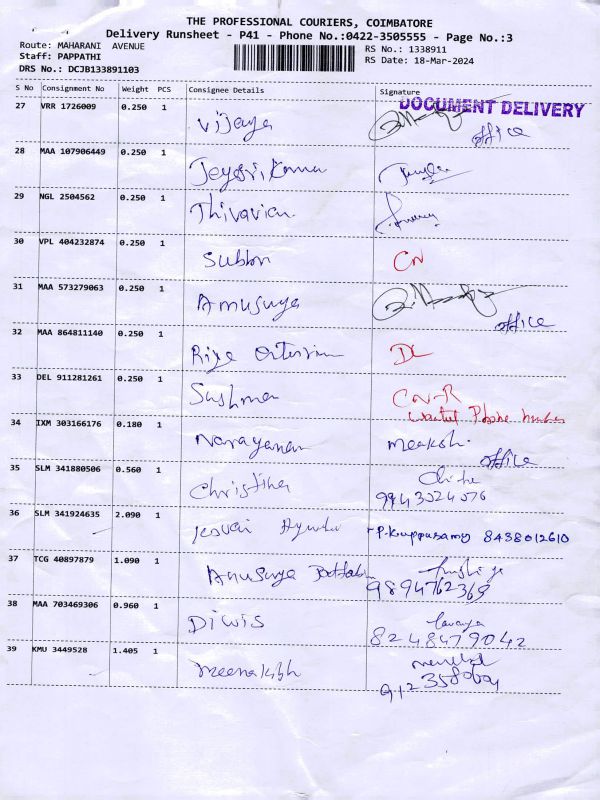 THE PROFESSIONAL COURIERS, COIMBATORE
Delivery Runsheet - P41 - Phone No.:0422-3505555 - Page No.:3
Route: MAHARANI AVENUE
RS No.: 1338911
Staff: PAPPATHI
RS Date: 18-Mar-2024
DRS No.: DCJB133891103
S No Consignment No Weight PCS Consignee Details Signature
DOCUMENT DELIVERY
27 VRR 1726009 0.250 1
Vijaya
office
28 MAA 107906449 0.250 1
29 NGL 2504562 0.250 1
30 VPL 404232874 0.250 1
CN
31 MAA 573279063 0.250 1
Amusuya
office
32 MAA 864811140 0.250 1
DL
33 DEL 911281261 0.250 1
Sushma
CN-R
Phone number
34 IXM 303166176 0.180 1
Narayanan
office
35 SLM 341880506 0.560 1
Christina
9943024076
36 SLM 341924635 2.090 1
Kovai P.Kuppusamy 8438012610
37 TCG 40897879 1.090 1
Anusuya
9894762369
38 MAA 703469306 0.960 1
Diwis
8248479042
39 KMU 3449528 1.405 1
Meenakshi